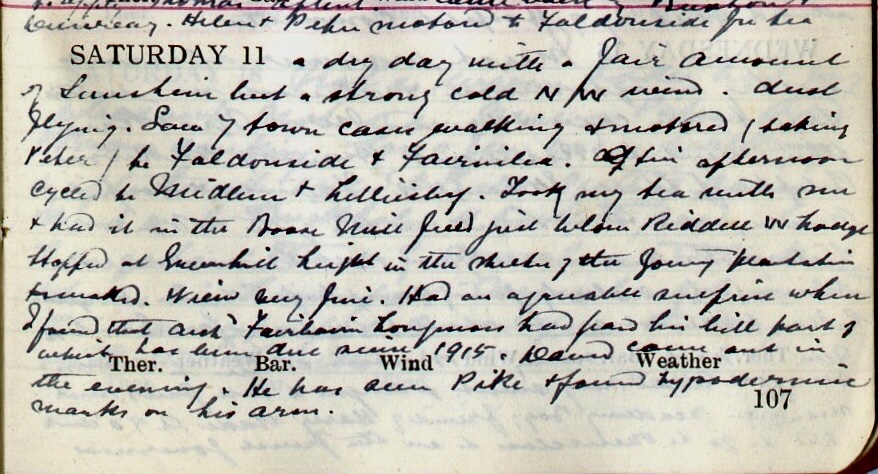 Helen & Peter motored to Faldonside for tea
SATURDAY 11 a dry day with a fair amount
of Sunshine but a strong cold N W wind. dust
flying. Saw 7 town cases walking & motored (taking
Peter) to Faldonside & Fairnilee. After afternoon
cycled to Midlem & Lilliesleaf. Took my tea with me
& had it in the Moss field just below Riddell W
Stopped at Greenhill height in the of the young Plantation
& smoked. View very fine. Had an agreeable surprise when
I found that Arch Fairbairn Longmoss had paid his bill part of
which has been due since 1915. David came out in
Ther. Bar. Wind Weather
the evening. He has seen Pike & found hypodermic
marks on his arm.
107